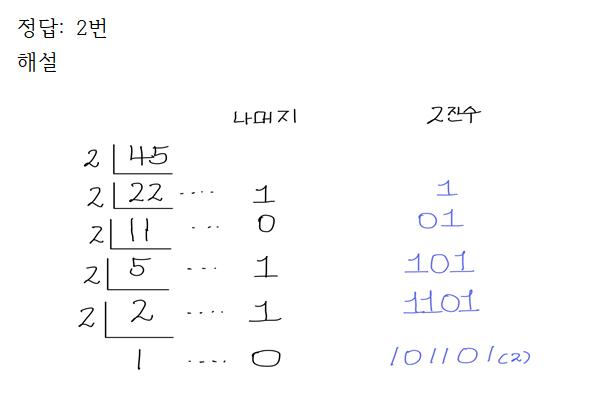 정답: 2번
해설
나머지 2진수
2 45
2 22 .... 1 1
2 11 ... 0 01
2 5 ... 1 101
2 2 .... 1 1101
1 .... 0 101101(2)